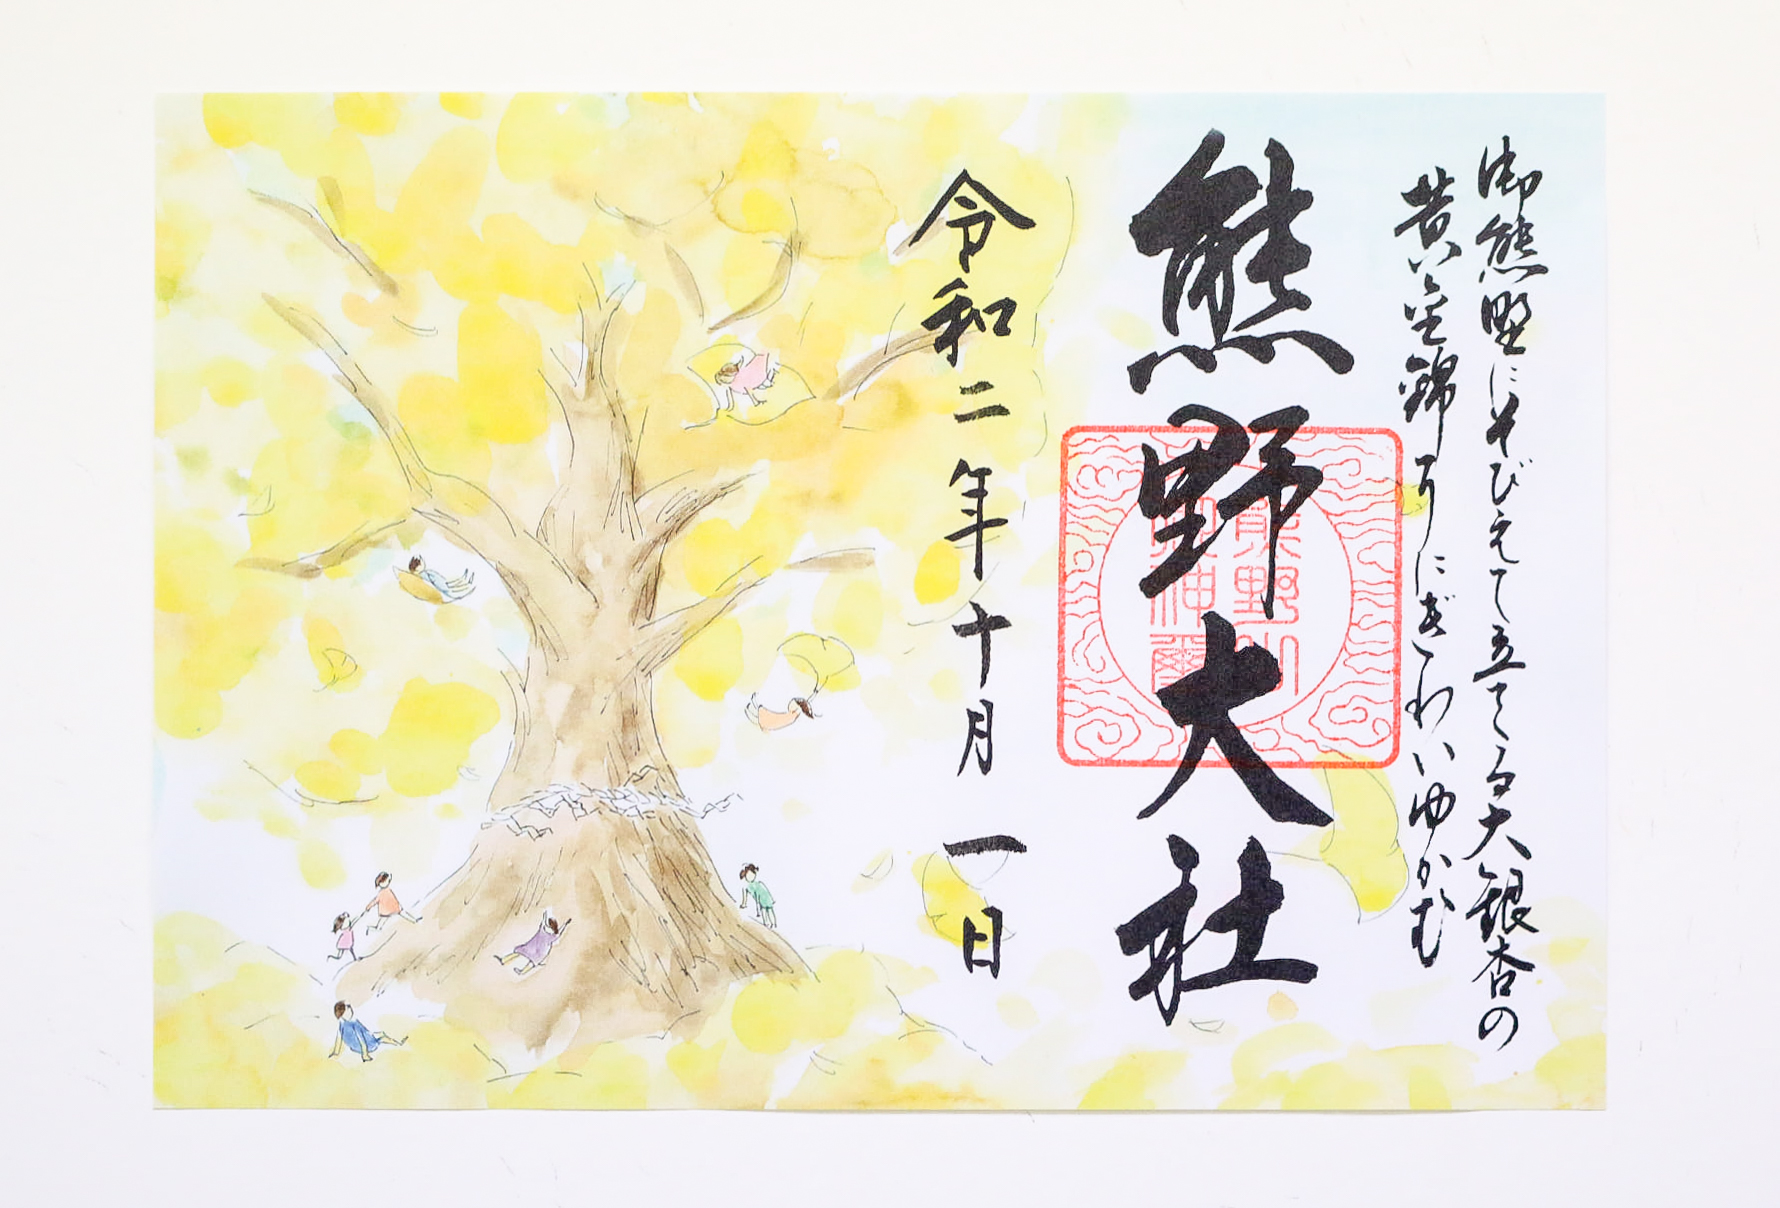 御熊野にそびえて立てる大銀杏の
黄金錦 にぎわいゆかむ
熊野大社
熊野
神
令和二年十月一日